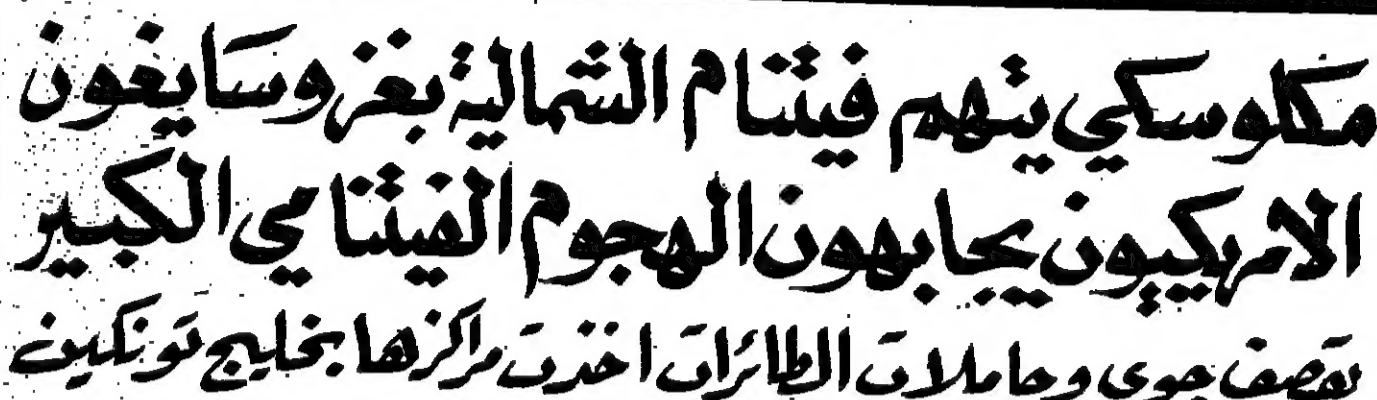 مكلوسكي يتهم فيتنام الشمالية بغزو سايغون
الامريكيون يجابهون الهجوم الفيتنامي الكبير
بقصف جوي وحاملات الطائرات اخذت مراكزها بخليج تونكين